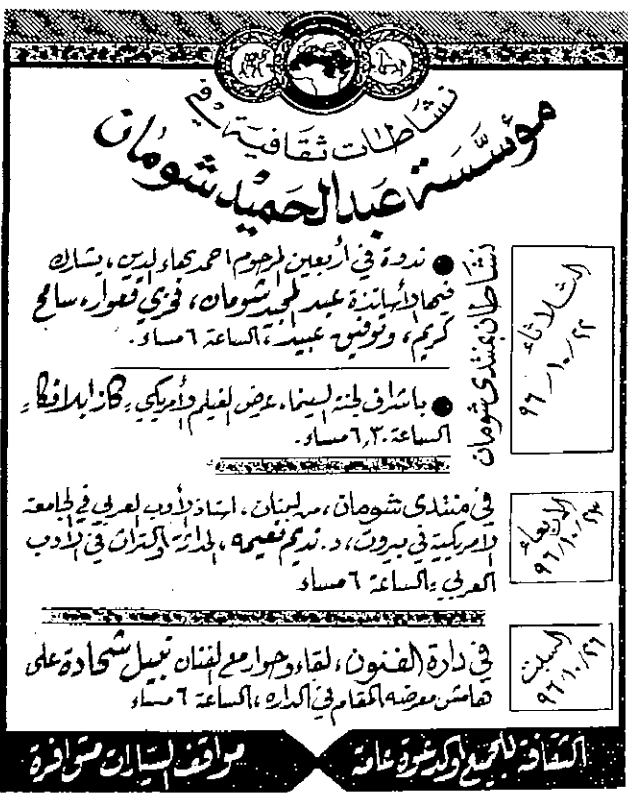 نشاطات ثقافية في
مؤسسة عبد الحميد شومان
الثلاثاء
٩٦/١٠/٢٢
نشاطان بمنتدى شومان
● ندوة في أربعين المرحوم احمد بهاء الدين، يشارك
فيها الأساتذة عبد المجيد شومان، فخري قعوار، سامح
كريم، وتوفيق عبيد، الساعة ٦ مساء.
● باشراف لجنة السينما، عرض الفيلم الأمريكي "كازابلانكا"
الساعة ٦,٣٠ مساء.
الأربعاء
٩٦/١٠/٢٣
في منتدى شومان، من لبنان، استاذ الأدب العربي في الجامعة
الأمريكية في بيروت، د. نديم نعيمه، الحداثة والتراث في الأدب
العربي، الساعة ٦ مساء
السبت
٩٦/١٠/٢٦
في دارة الفنون، لقاء وحوار مع الفنان نبيل شحادة على
هامش معرضه المقام في الداره، الساعة ٦ مساء
الثقافة للجميع والدعوة عامة
مواقف السيارات متوافرة